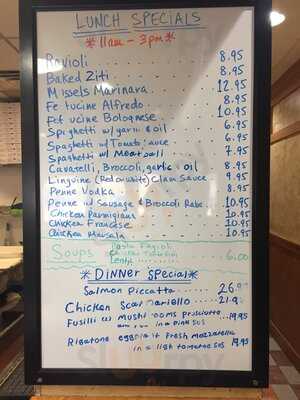 LUNCH SPECIALS
*11am - 3pm*
Ravioli 8.95
Baked Ziti 8.95
Missels Marinara 12.95
Fettucine Alfredo 8.95
Fettucine Bolognese 10.95
Spighetti w/garlic & oil 6.95
Spaghetti w/Tomato sauce 6.95
Spaghetti w/ Meatball 7.95
Cavatelli, Broccoli, garlic & oil 8.95
Linguine (Red or white) Clam Sauce 9.95
Penne Vodka 8.95
Penne w/ Sausage & Broccoli Rabe 10.95
Chicken Parmigiana 10.95
Chicken Francese 10.95
Chicken Marsala 10.95
Soups Pasta Fagioli
6.00
*DINNER Special*
Salmon Piccatta 26.95
Chicken Scarpariello 21.95
Fusilli w/ Mushrooms prosciutto 19.95
in a Pink Sus
Rigatone eggplant w/ Fresh Mozzarella
in a ligh tomatoe sus 19.95